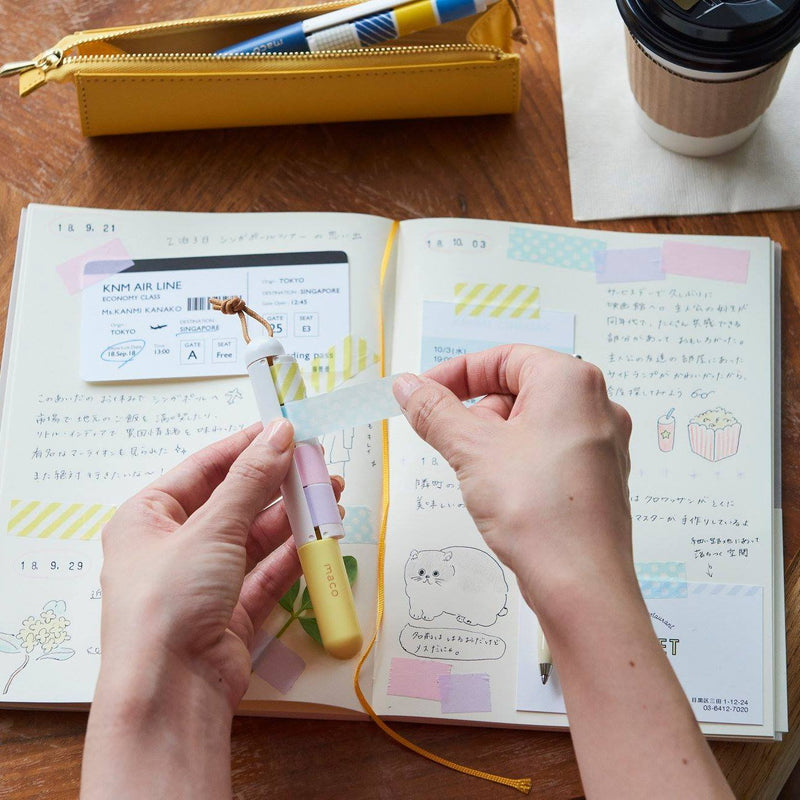 maco
18. 9. 21
2泊3日 シンガポールツアー の思い出
KNM AIR LINE
ECONOMY CLASS
Ms.KANMI KANAKO
Origin
TOKYO
DESTINATION
SINGAPORE
Departure Date
18.Sep.18
Time
13:00
GATE
A
SEAT
Free
Origin TOKYO
DESTINATION SINGAPORE
Gate Open 12:45
GATE
25
SEAT
E3
ding pass
このあいだの お休みで シンガポールへ
市場で 地元のご飯を 満喫したり、
リトル・インディアで 異国情緒を 味わったり
有名なマーライオンも見られた
また絶対 行きたいな〜!
18. 9. 29
maco
18. 10. 03
10/3(水)
サービスデーで 久しぶりに
映画館へ。 主人公の
同年代で、たくさん 共感できる
部分があって おもしろかった。
主人公の友達の 部屋にあった
サイドランプが かわいかったから、
今度探してみよう
18.
隣町の
美味しい
は クロワッサンが とくに
マスターが 手作りしているよ
落ちつく 空間
名前は
メスだにゃ。
Restaurant
ET
目黒区三田 1-12-24
03-6412-7020